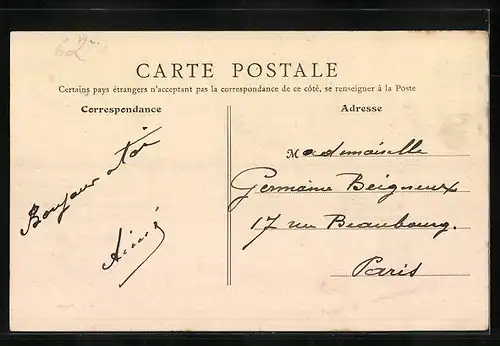 62
CARTE POSTALE
Certains pays étrangers n'acceptant pas la correspondance de ce côté, se renseigner à la Poste
Correspondance
Bonjour à toi
Aimé
Adresse
Mademoiselle
Germaine Beigneux
17 rue Beaubourg.
Paris